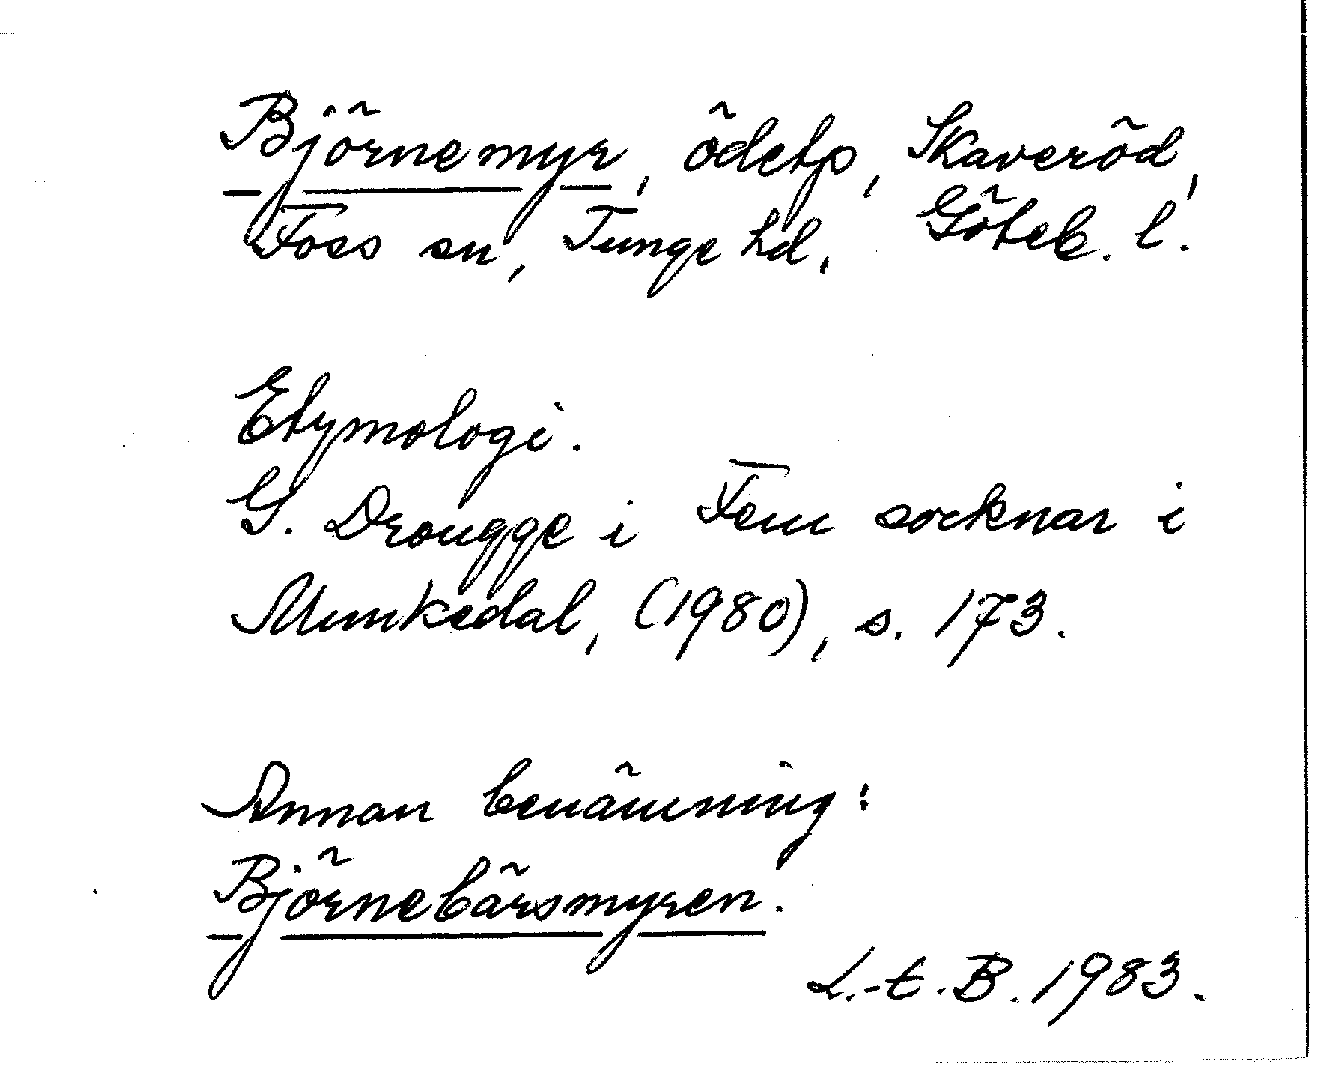 Björnemyr, ödetp, Skaveröd,
Foss sn, Tunge hd, Göteb. l.
Etymologi.
G. Drougge i Fem socknar i
Munkedal, (1980), s. 173.
Annan benämning:
Björnebärsmyren.
L.-t. B. 1983.